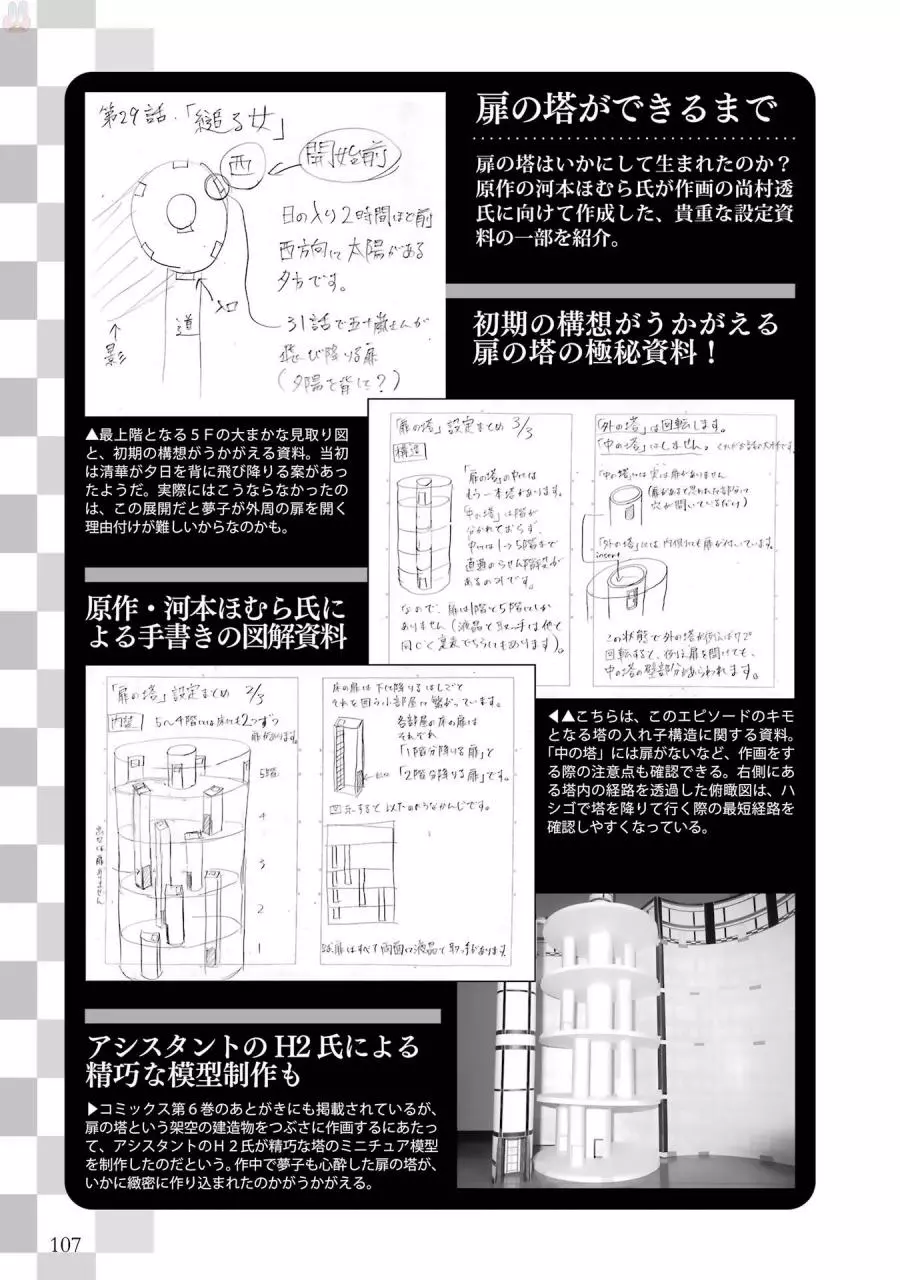 扉の塔ができるまで
扉の塔はいかにして生まれたのか？
原作の河本ほむら氏が作画の尚村透
氏に向けて作成した、貴重な設定資
料の一部を紹介。
第29話.「縋る女」
西
開始前
日の入り2時間ほど前
西方向に太陽がある
夕方です。
入口
道
↑
影
31話で五十嵐さんが
飛び降りる扉
(夕陽を背に?)
初期の構想がうかがえる
扉の塔の極秘資料！
▲最上階となる５Ｆの大まかな見取り図
と、初期の構想がうかがえる資料。当初
は清華が夕日を背に飛び降りる案があっ
たようだ。実際にはこうならなかったの
は、この展開だと夢子が外周の扉を開く
理由付けが難しいからなのかも。
「扉の塔」設定まとめ 3/3
構造
「扉の塔」の中には
もう一本塔があります。
「中の塔」は階が
分かれておらず、
中には1→5階まで
直通のらせん階段が
あるのみです。
なので、扉は1階と5階にしか
ありません(液晶と取っ手は他と
同じく裏表どちらにもあります)。
「外の塔」は回転します。
「中の塔」はしません。
「中の塔」には実は扉がありません
(扉があると思われた部分に
穴が開いているだけ)
「外の塔」には内側にも扉が付いています。
insert
この状態で外の塔が例えば72°
回転すると、例え扉を開けても、
中の塔の壁部分があらわれます。
原作・河本ほむら氏に
よる手書きの図解資料
「扉の塔」設定まとめ 2/3
内装
5～4階には床にも2つずつ
扉があります。
5階
4
3
2
1
床の扉は下に降りるはしごと
それを囲う小部屋に繋がっています。
各部屋の床の扉は
それぞれ
「1階分降りる扉」と
「2階分降りる扉」です。
図示すると以下のようなかんじです。
扉はすべて両面に液晶と取っ手があります
◀▲こちらは、このエピソードのキモ
となる塔の入れ子構造に関する資料。
「中の塔」には扉がないなど、作画をす
る際の注意点も確認できる。右側にあ
る塔内の経路を透過した俯瞰図は、ハ
シゴで塔を降りて行く際の最短経路を
確認しやすくなっている。
アシスタントのH2氏による
精巧な模型制作も
▶コミックス第６巻のあとがきにも掲載されているが、
扉の塔という架空の建造物をつぶさに作画するにあたっ
て、アシスタントのＨ２氏が精巧な塔のミニチュア模型
を制作したのだという。作中で夢子も心酔した扉の塔が、
いかに緻密に作り込まれたのかがうかがえる。
107